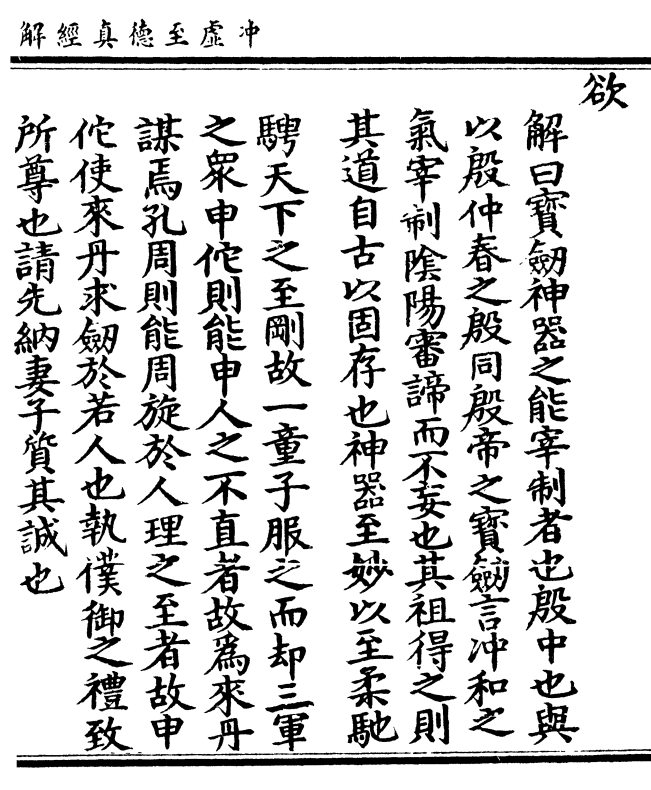 冲虛至德真經解
欲
解曰寶劒神器之能宰制者也殷中也與
以殷仲春之殷同殷帝之寶劒言冲和之
氣宰制陰陽審諦而不妄也其祖得之則
其道自古以固存也神器至妙以至柔馳
騁天下之至剛故一童子服之而却三軍
之衆申佗則能申人之不直者故為來丹
謀焉孔周則能周旋於人理之至者故申
佗使來丹求劒於若人也執僕御之禮致
所尊也請先納妻子質其誠也